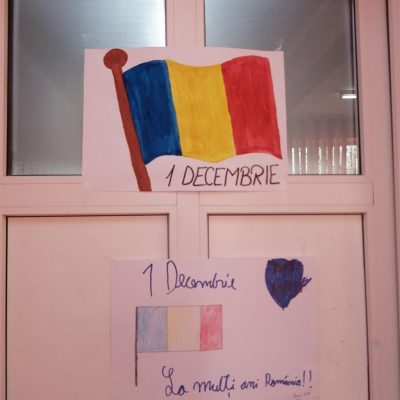 1 DECEMBRIE
1 Decembrie
La mulți ani România!!